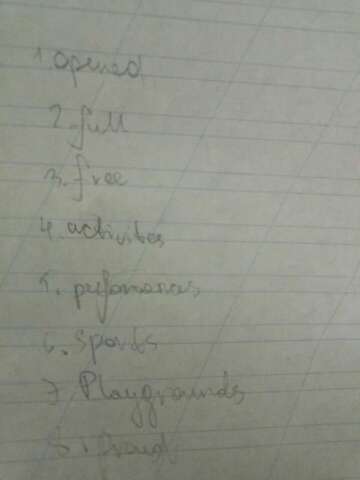 1 opened
2. full
3. free
4. activites
5. pefomances
6. Sports
7. Playgrounds
8.